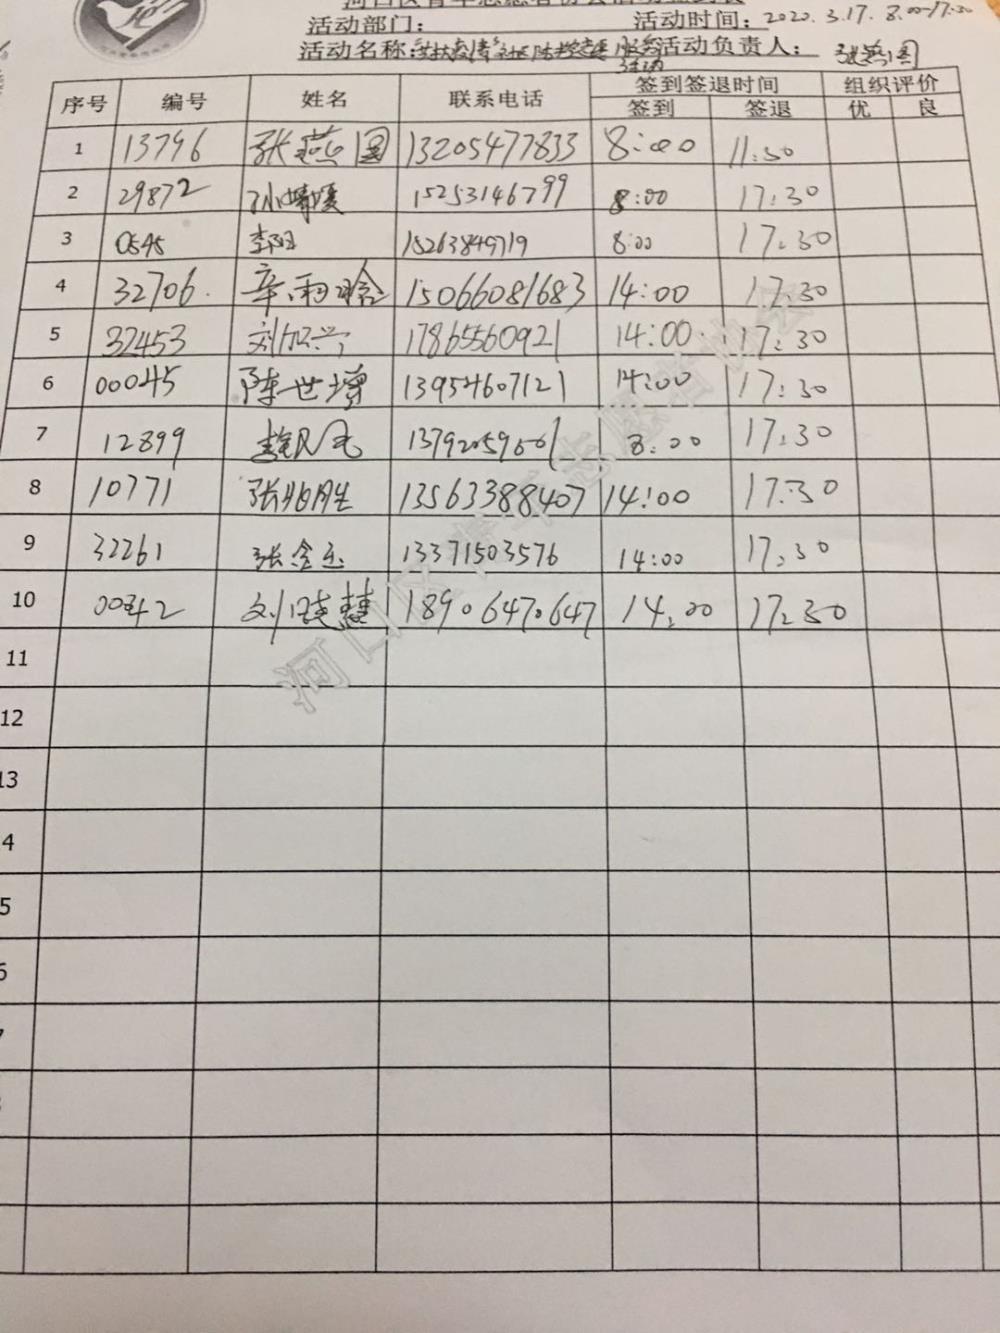 河口区青年志愿者协会活动签到表
活动部门： 活动时间：2020.3.17. 8:00-17:30
活动名称： 社区 服务 活动负责人：张燕图
活动
序号 编号 姓名 联系电话 签到签退时间 组织评价
签到 签退 优 良
1 13796 张燕图 13205477833 8:00 11:30
2 29872 15253146799 8:00 17:30
3 15263849719 8:00 17:30
4 32706. 辛雨晗 15066081683 14:00 17:30
5 32453 刘加兴 17865560921 14:00 17:30
6 00045 陈世增 13954607121 14:00 17:30
7 12899 8:00 17:30
8 10771 张胜 13563388407 14:00 17:30
9 32261 张金玉 13371503576 14:00 17:30
10 刘晓慧 18906470647 14:00 17:30
11
12
13
4
5
6
河口区青年志愿者协会